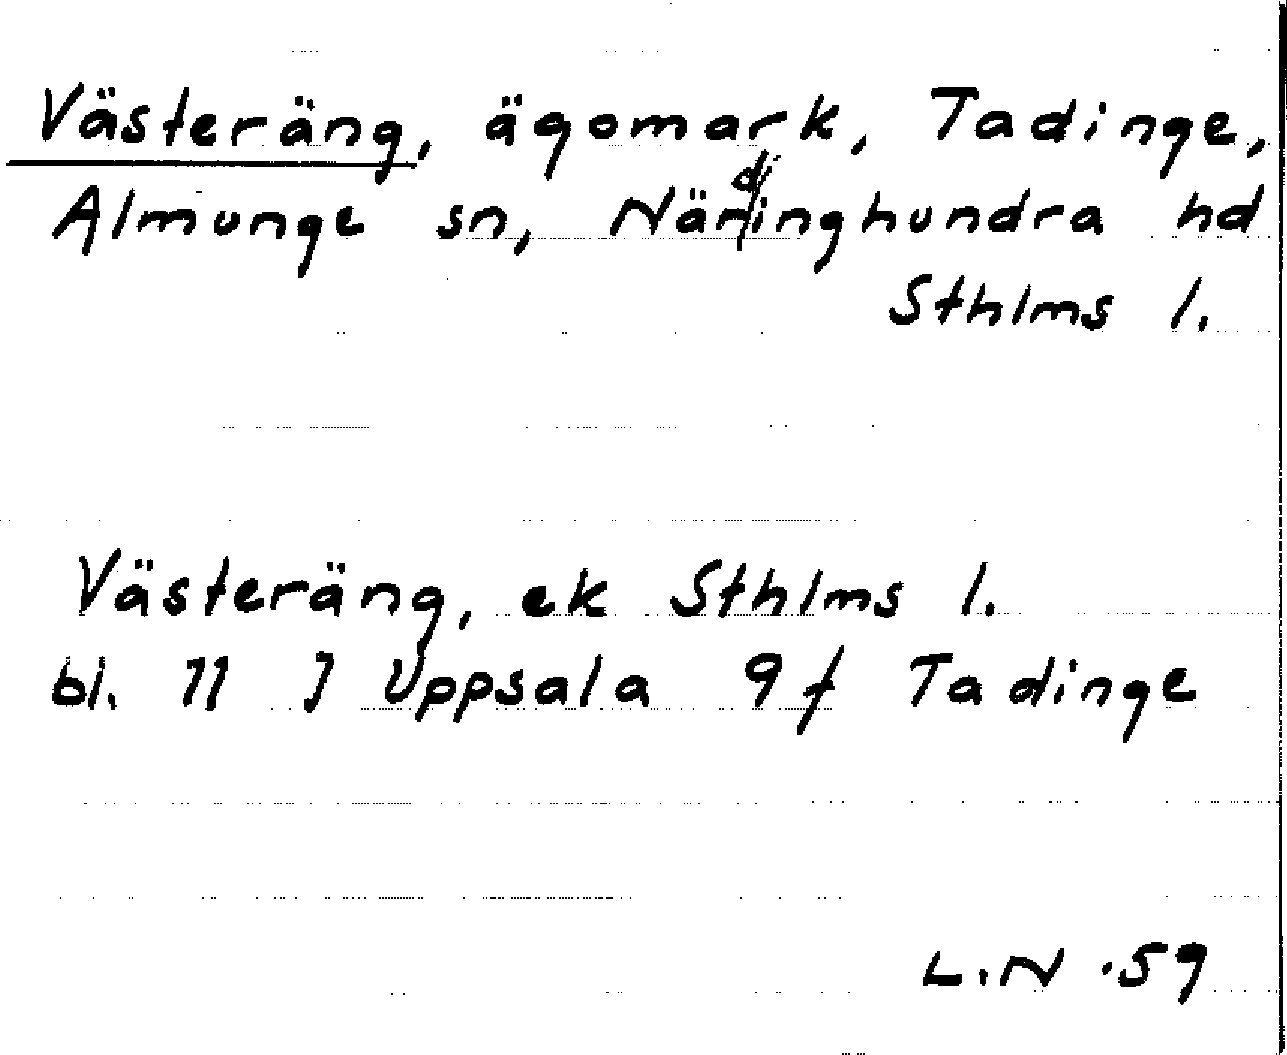 Västeräng, ägomark, Tadinge,
Almunge sn, Närdinghundra hd
Sthlms l.
Västeräng, ek Sthlms l.
bl. 11 J Uppsala 9 f Tadinge
L.N .59